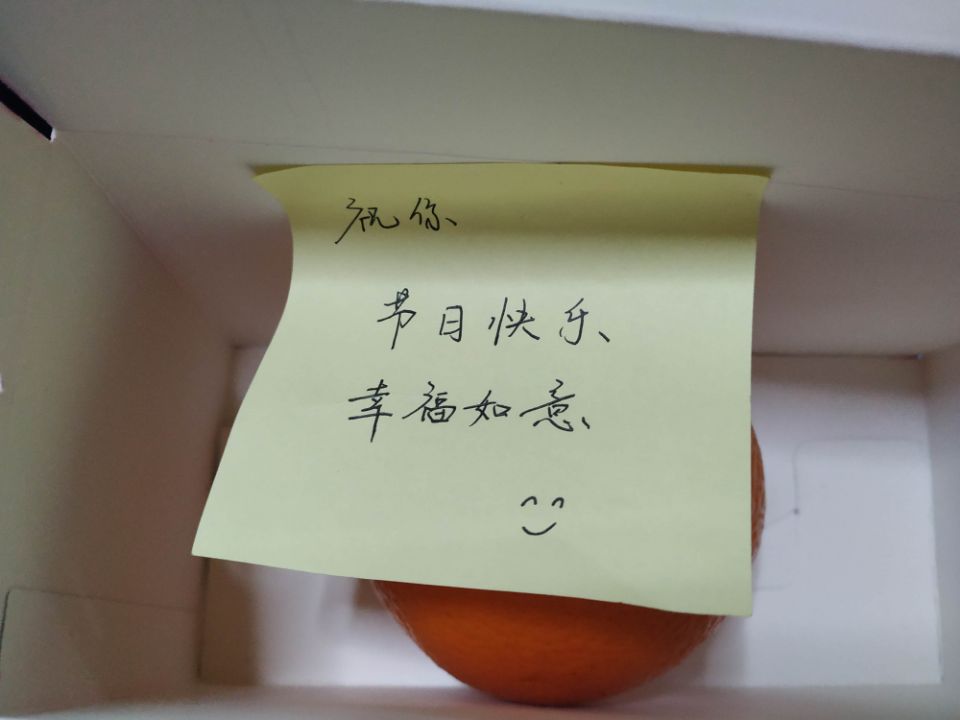 祝你、
节日快乐、
幸福如意、